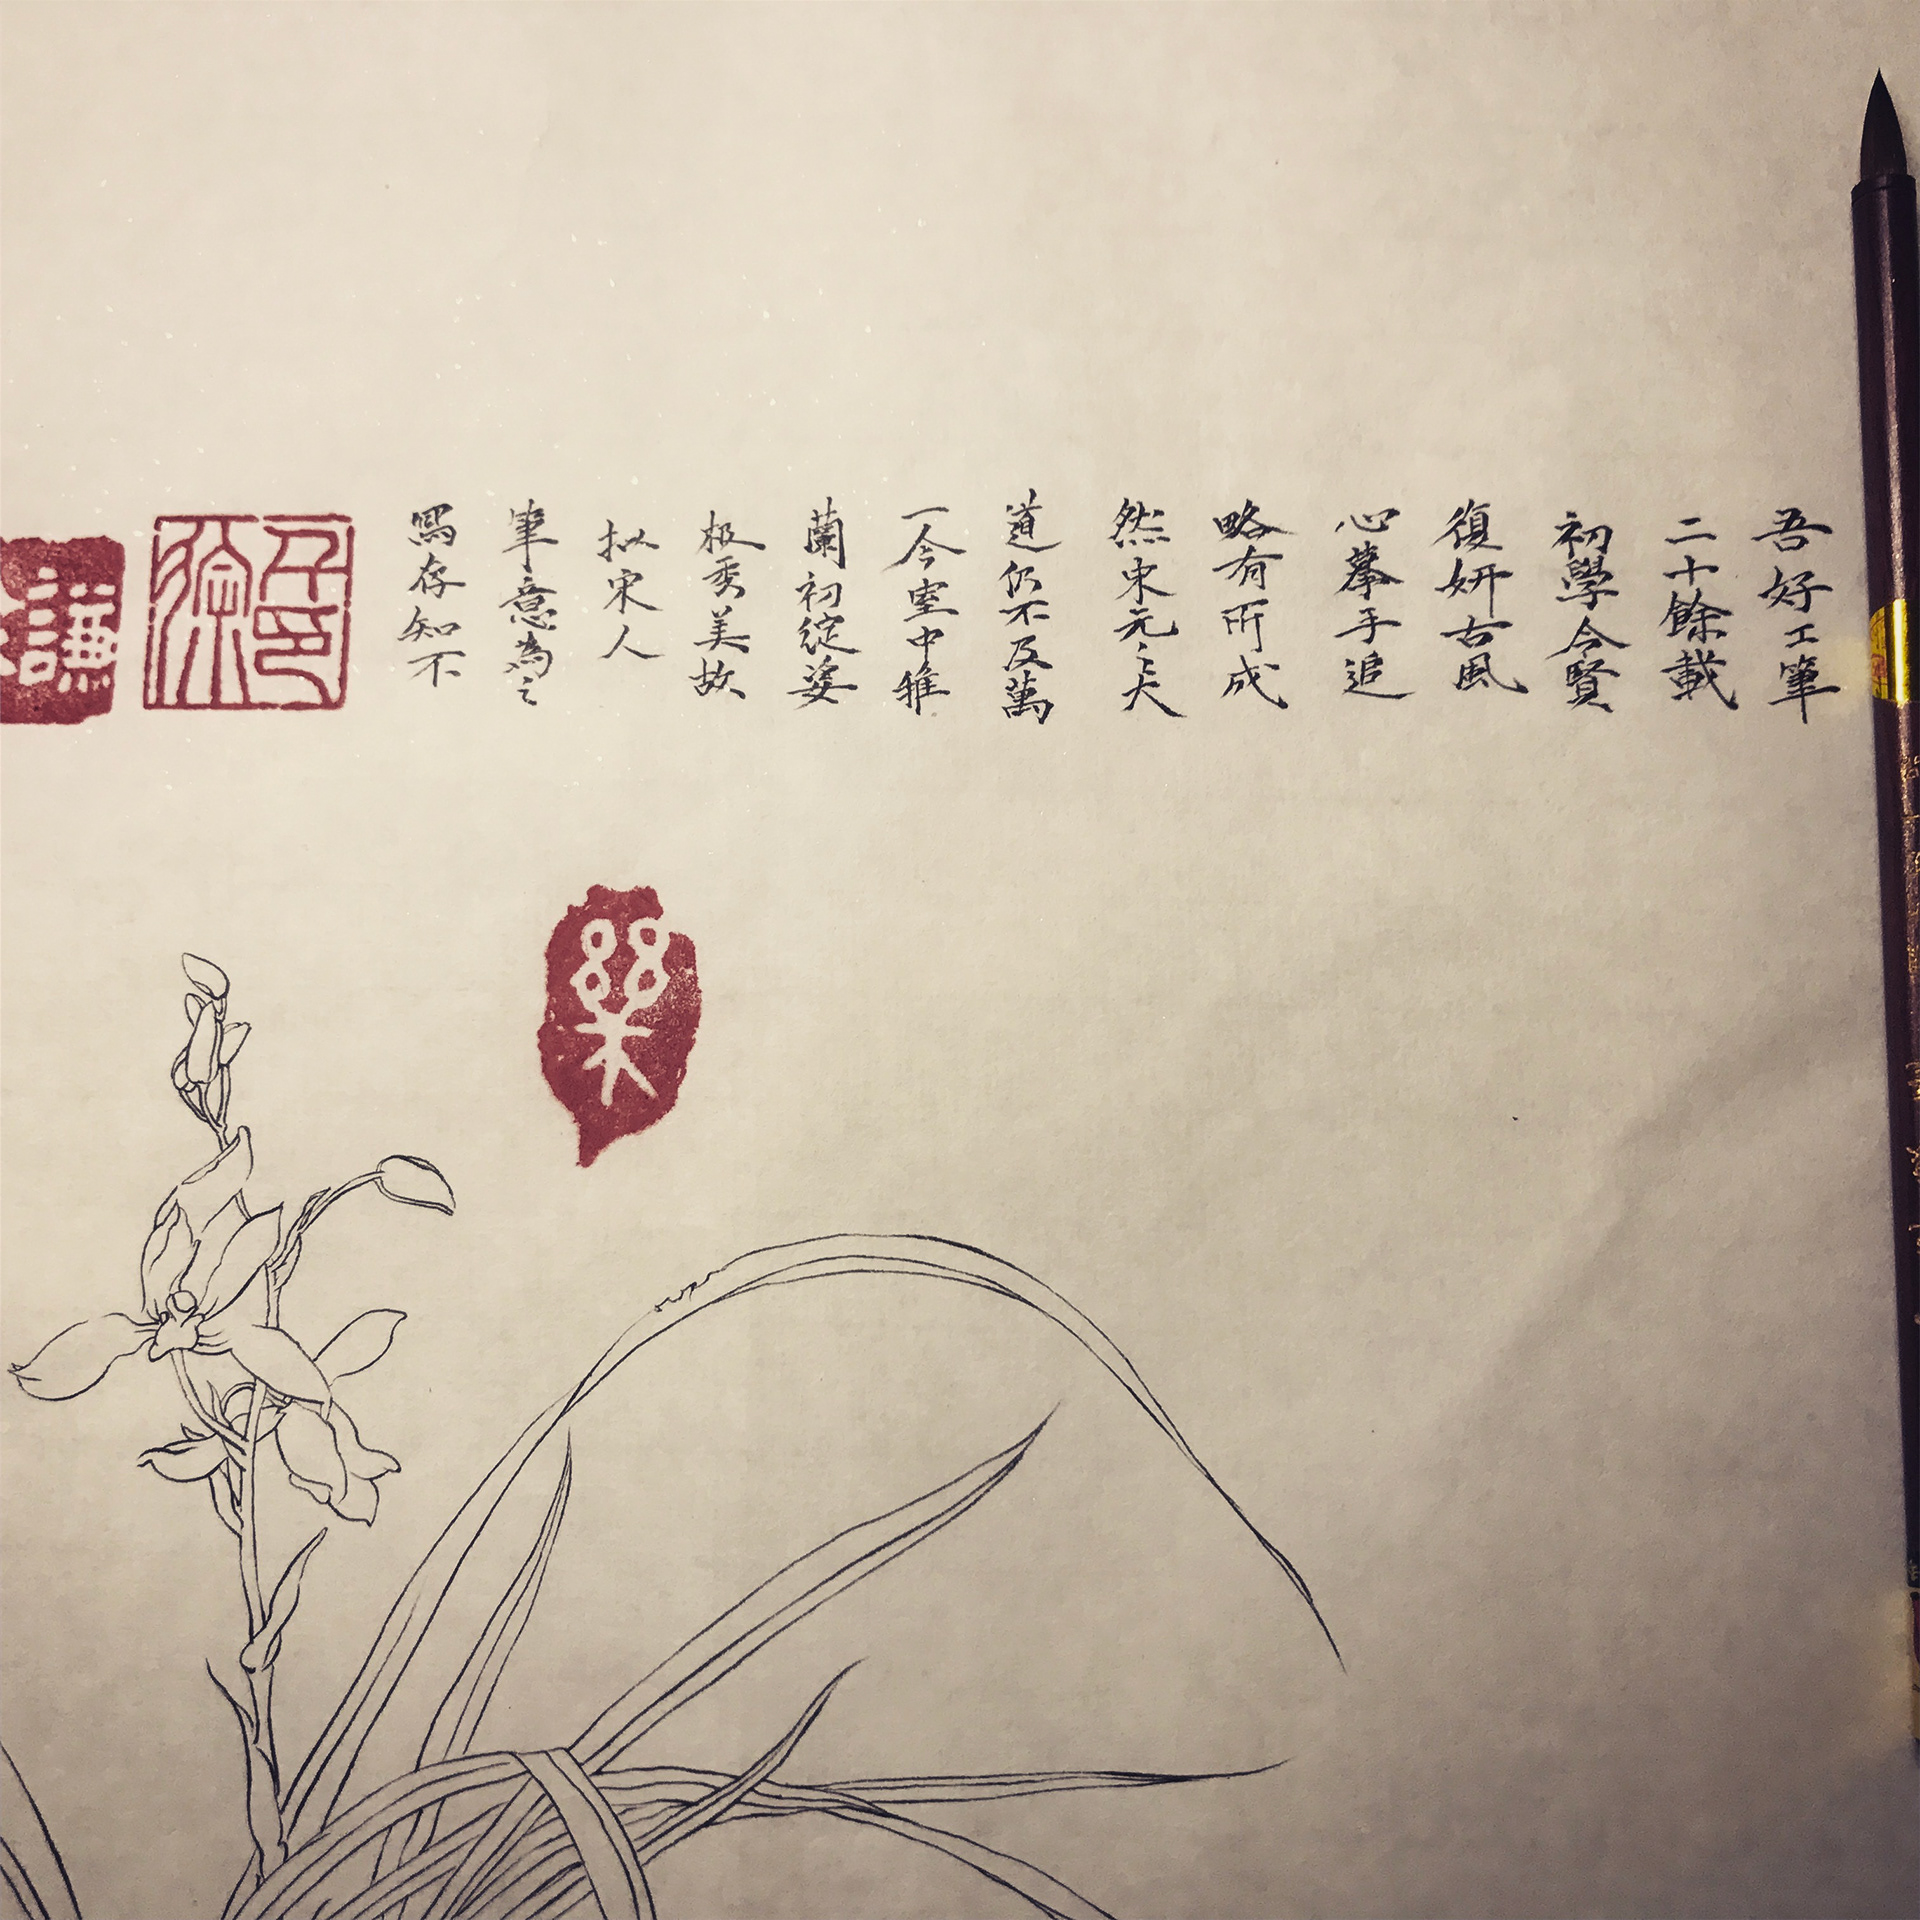 吾好工筆
二十餘載
初學今賢
復妍古風
心摹手追
略有所成
然宋元之大
道仍不及萬
一今室中雅
蘭初綻姿
极秀美故
拟宋人
筆意為之
寫存知不
謙
樂